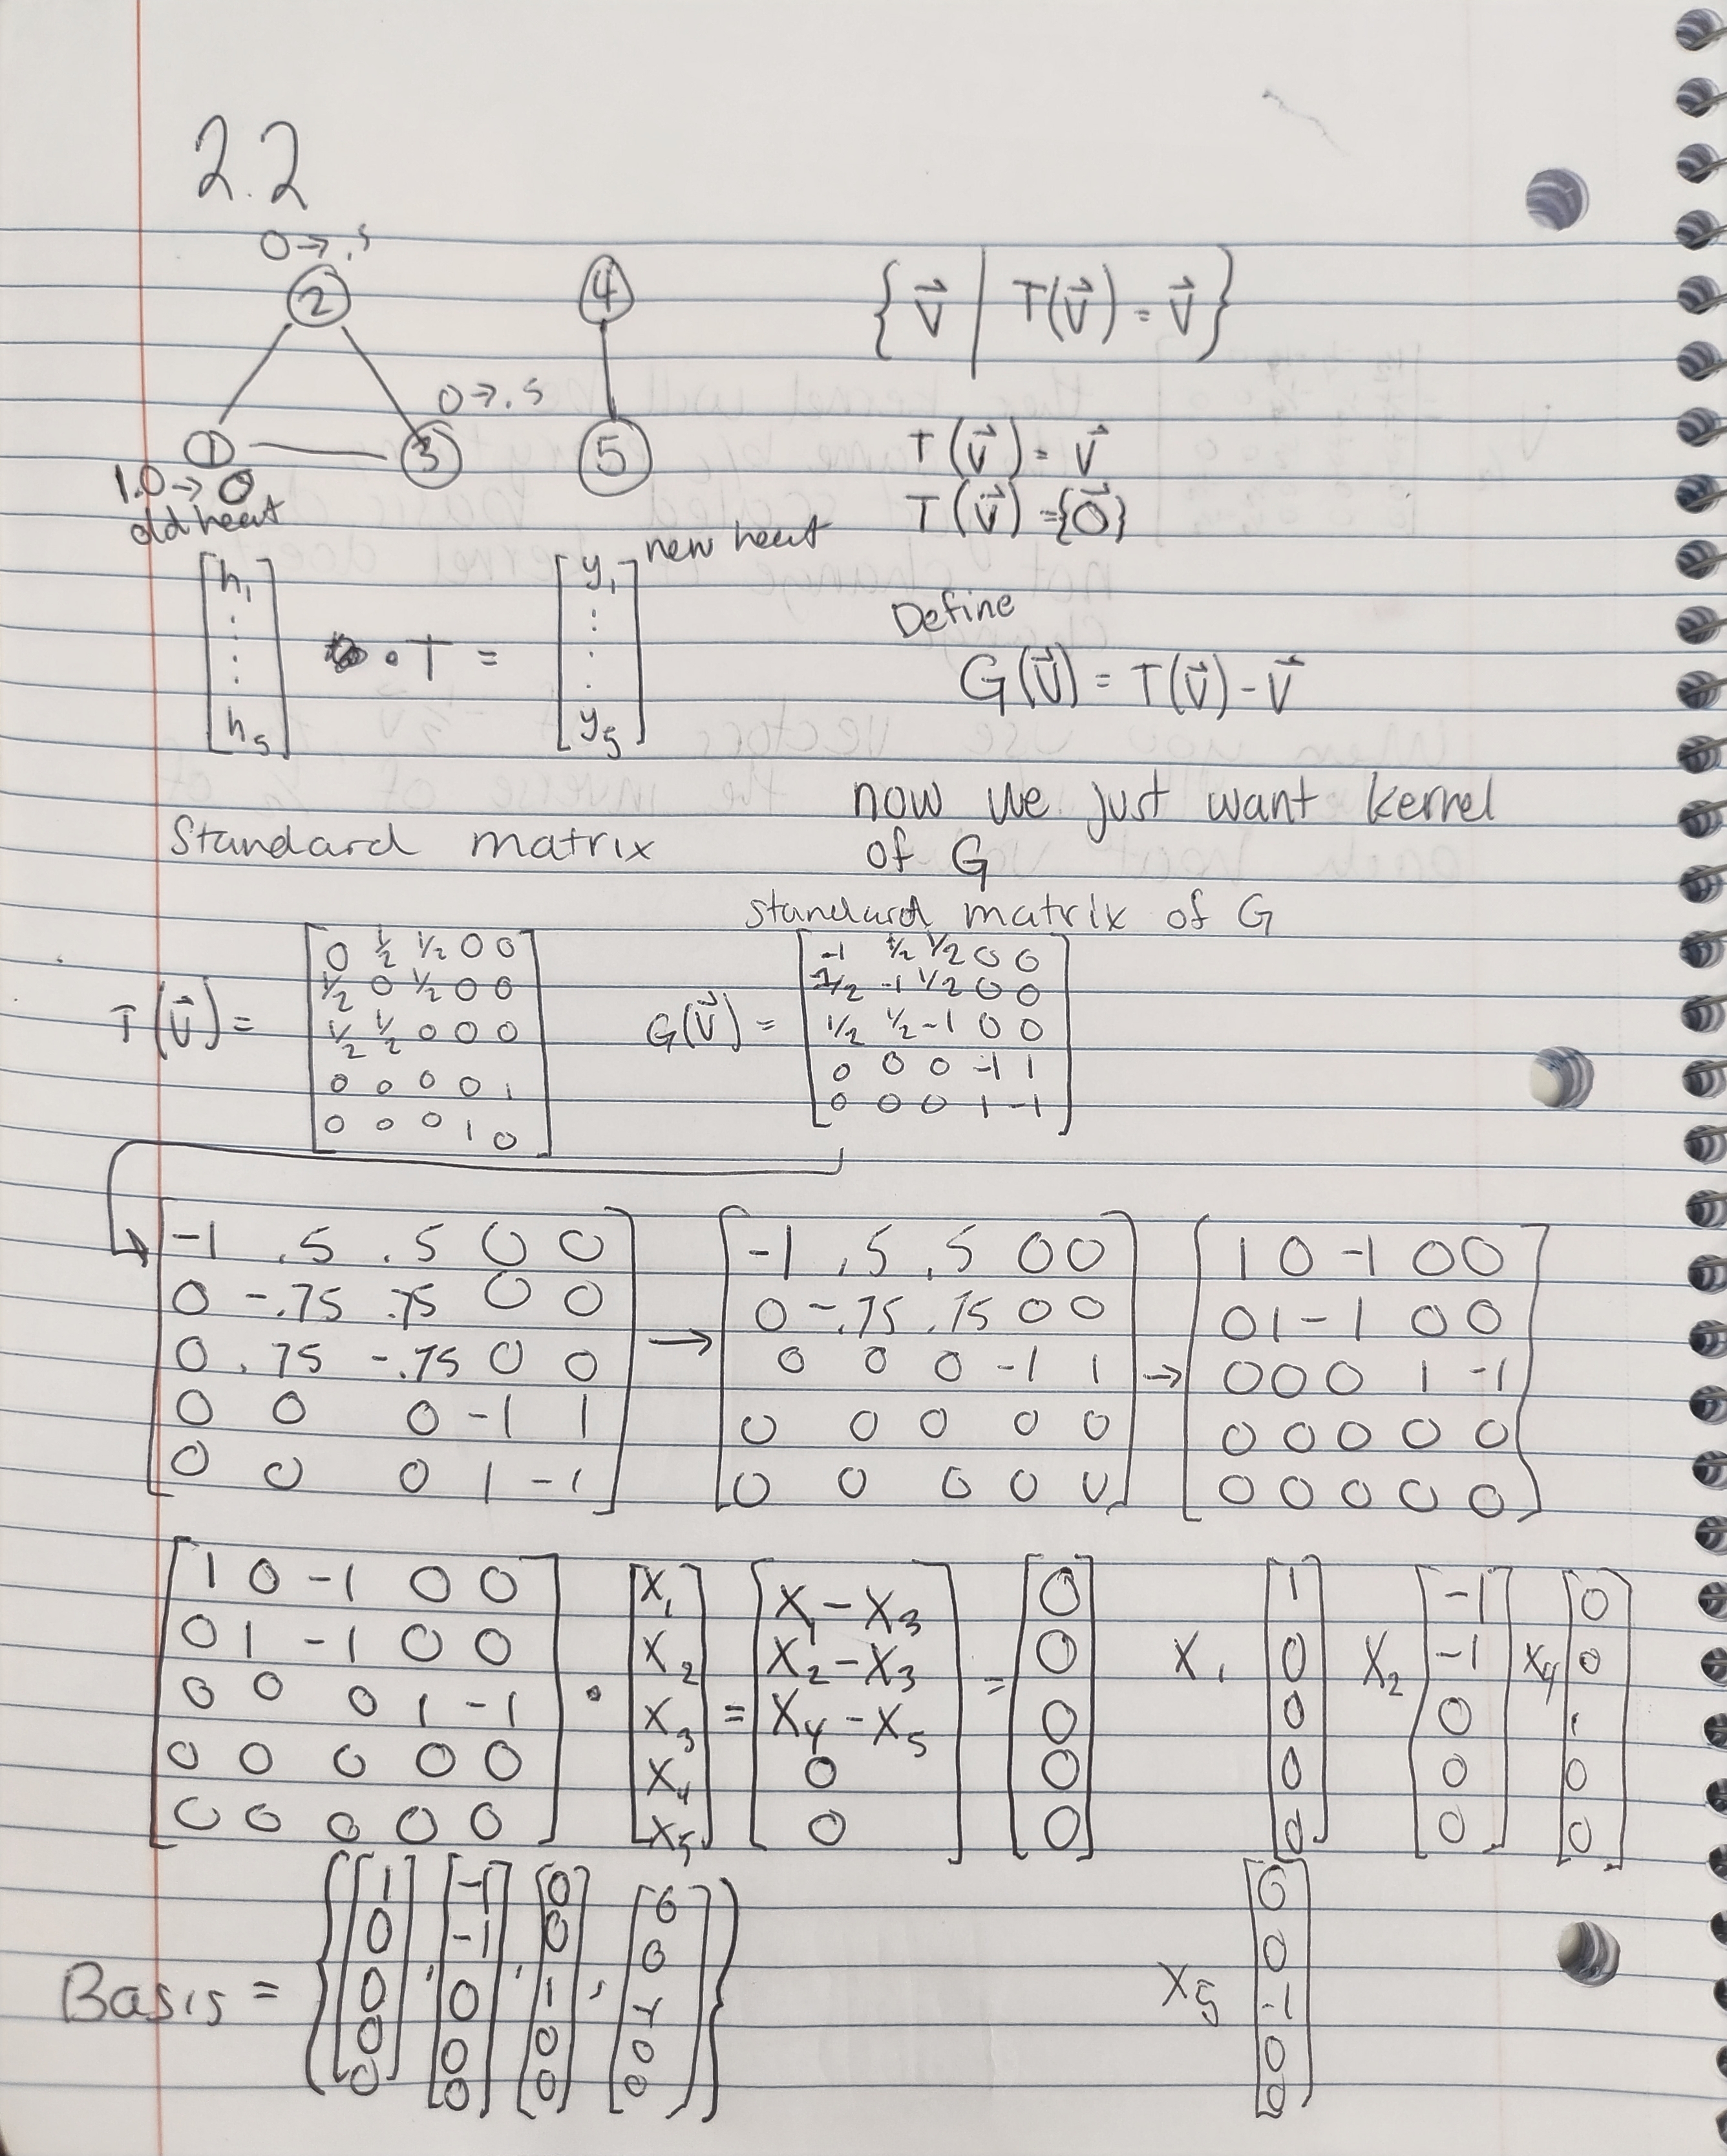 2.2
0→.5
② ④
{ v⃗ | T(v⃗) = v⃗ }
0→.5
① ③ ⑤
1.0→0
old heat
T(v⃗) = v⃗
T(v⃗) = {0⃗}
[h₁ : : h₅] · T = [y₁ : . . y₅] new heat
Define
G(v⃗) = T(v⃗) - v⃗
now we just want kernel
of G
Standard matrix
standard matrix of G
T(v⃗) =
0 ½ ½ 0 0
½ 0 ½ 0 0
½ ½ 0 0 0
0 0 0 0 1
0 0 0 1 0
G(v⃗) =
-1 ½ ½ 0 0
½ -1 ½ 0 0
½ ½ -1 0 0
0 0 0 -1 1
0 0 0 1 -1
-1 .5 .5 0 0
0 -.75 .75 0 0
0 .75 -.75 0 0
0 0 0 -1 1
0 0 0 1 -1
→
-1 .5 .5 0 0
0 -.75 .75 0 0
0 0 0 -1 1
0 0 0 0 0
0 0 0 0 0
→
1 0 -1 0 0
0 1 -1 0 0
0 0 0 1 -1
0 0 0 0 0
0 0 0 0 0
1 0 -1 0 0
0 1 -1 0 0
0 0 0 1 -1
0 0 0 0 0
0 0 0 0 0
·
x₁
x₂
x₃
x₄
x₅
=
x₁ - x₃
x₂ - x₃
x₄ - x₅
0
0
=
0
0
0
0
0
x₁
1
0
0
0
0
x₂
-1
-1
0
0
0
x₄
0
0
1
0
0
x₅
0
0
-1
0
0
Basis = { [1 0 0 0 0], [-1 -1 0 0 0], [0 0 1 0 0], [0 0 -1 0 0] }